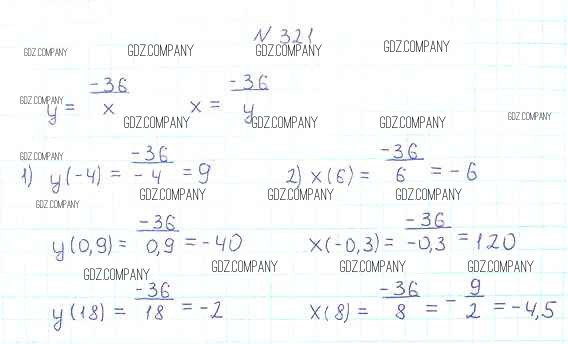 N 321
GDZ.COMPANY GDZ.COMPANY GDZ.COMPANY GDZ.COMPANY
y = -36/x x = -36/y
GDZ.COMPANY
GDZ.COMPANY GDZ.COMPANY GDZ.COMPANY GDZ.COMPANY
GDZ.COMPANY
1) y(-4) = -36/-4 = 9 2) x(6) = -36/6 = -6
GDZ.COMPANY GDZ.COMPANY GDZ.COMPANY
y(0,9) = -36/0,9 = -40 x(-0,3) = -36/-0,3 = 120
GDZ.COMPANY GDZ.COMPANY GDZ.COMPANY GDZ.COMPANY
y(18) = -36/18 = -2 x(8) = -36/8 = -9/2 = -4,5